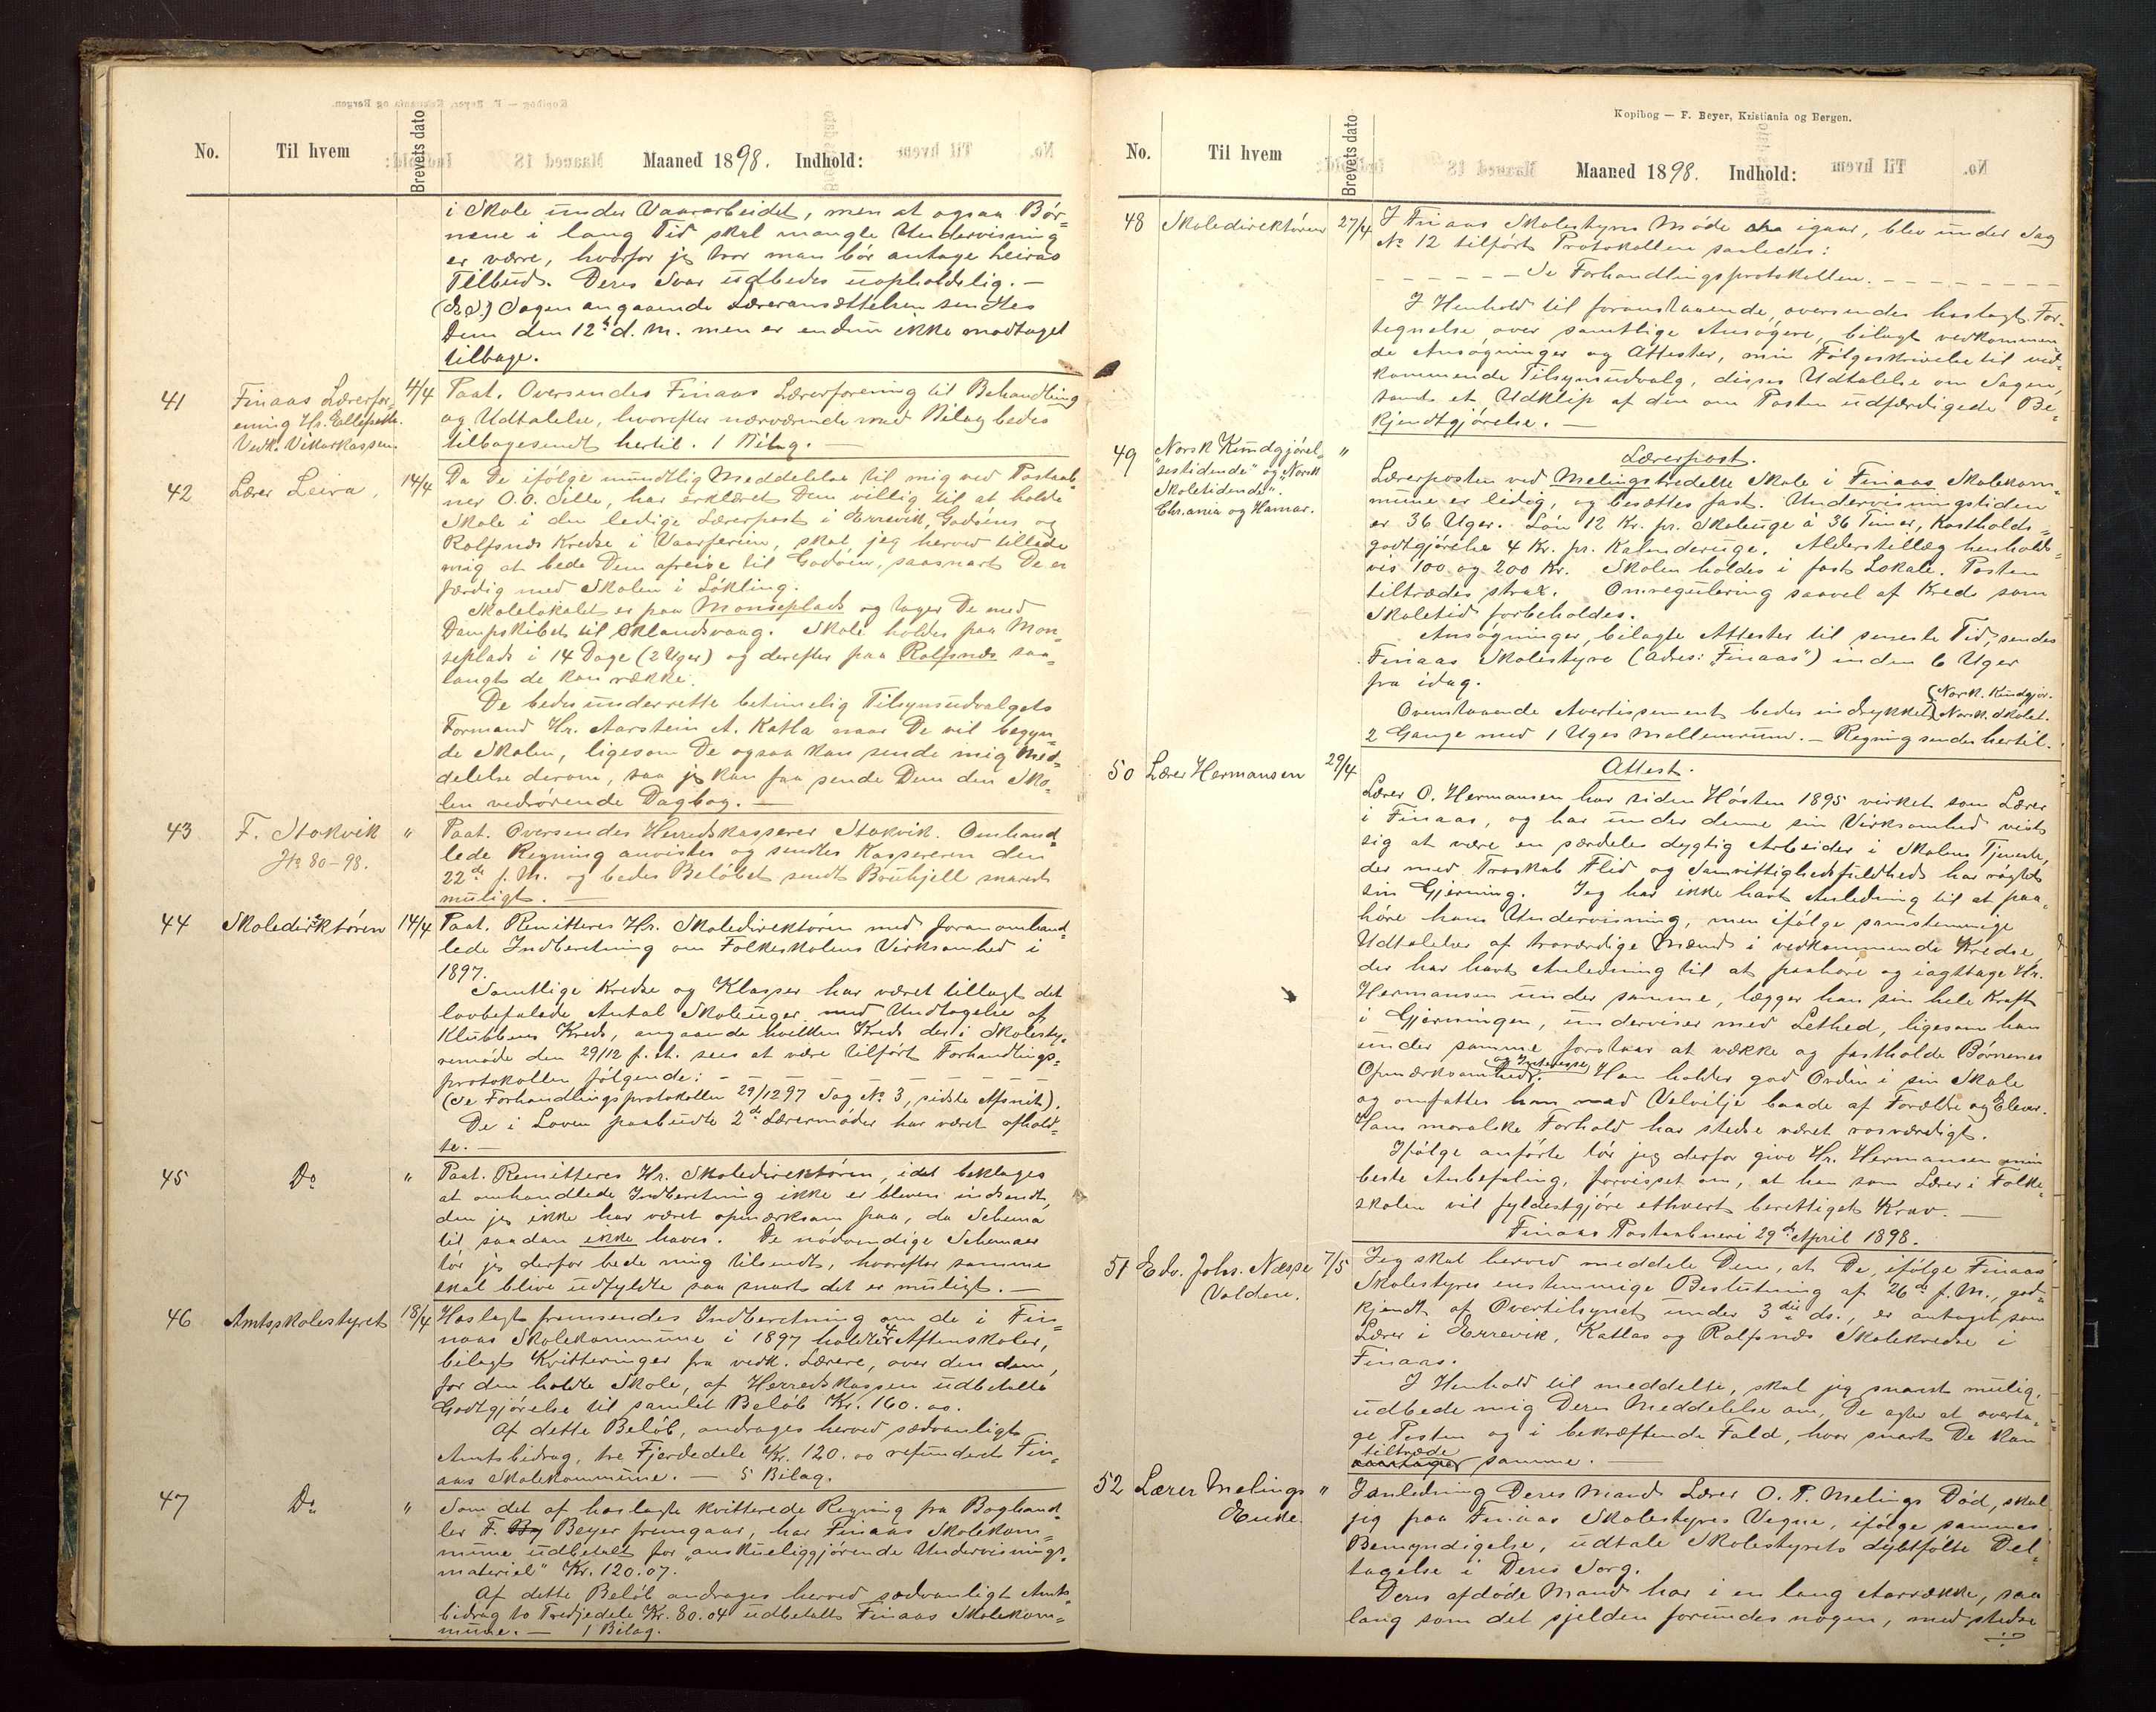 No. Til hvem Brevets dato Maaned 1898. Indhold:
i Skole under Vaararbeidet, men at ogsaa Bør-
nene i lang Tid skal mangle Undervisning
er værre, hvorfor jeg tror man bør antage Leiras
Tilbud. Deres Svar udbedes uopholdelig. —
Sagen angaaende Læreransættelsen sendtes
Dem den 12te d. M. men er endnu ikke modtaget
tilbage.
41 Finaas Lærerfor- 4/4 Paat. Oversendes Finaas Lærerforening til Behandling
ening Hr. og Udtalelse, hvorefter nærværende med Bilag bedes
Vedk. Vikarkassen. tilbagesendt hertil. 1 Bilag. —
42 Lærer Leira. 14/4 Da De ifølge mundtlig Meddelelse til mig ved Postaab-
ner O. O. Sille, har erklæret Dem villig til at holde
Skole i den ledige Lærerpost i Errevik, Godøens og
Rolfsnæs Kredse i Vaarferien, skal jeg herved tillade
mig at bede Dem afreise til Godøen, saasnart De er
færdig med Skolen i Løkling.
Skolelokalet er paa Monseplads og tager De med
Dampskibet til Eklandsvaag. Skole holdes paa Mon-
seplads i 14 Dage (2 Uger) og derefter paa Rolfsnæs saa-
langt de kan række.
De bedes underrette betimelig Tilsynsudvalgets
Formand Hr. Aarstein A. Katla naar De vil begyn-
de Skolen, ligesom De ogsaa kan sende mig Med-
delelse derom, saa jeg kan faa sende Dem den Sko-
len vedrørende Dagbog. —
43 F. Stokvik " Paat. Oversendes Herredskasserer Stokvik. Omhand-
Jr 80-98. lede Regning anvistes og sendtes Kassereren den
22de f. M. og bedes Beløbet sendt Bruhjell snarest
muligt. —
44 Skoledirektøren 14/4 Paat. Remitteres Hr. Skoledirektøren med foranomhand-
lede Indberetning om Folkeskolens Virksomhed i
1897.
Samtlige Kredse og Klasser har været tillagt det
lovbefalede Antal Skoleuger med Undtagelse af
Klubbens Kreds, angaaende hvilken Kreds der i Skolesty-
remøde den 29/12 f. A. sees at være tilført Forhandlings-
protokollen følgende: — — — — — —
(Se Forhandlingsprotokollen 29/12 97 Sag No 3, sidste Afsnit).
De i Loven paabudte 2de Lærermøder har været afhold-
te. —
45 Do " Paat. Remitteres Hr. Skoledirektøren, idet beklages
at omhandlede Indberetning ikke er bleven indsendt,
den jeg ikke har været opmærksom paa, da Schema
til saadan ikke haves. De nødvendige Schemaer
tør jeg derfor bede mig tilsendt, hvorefter samme
skal blive udfyldte saa snart det er muligt. —
46 Amtsskolestyret 18/4 Hoslagt fremsendes Indberetning om de i Fin-
naas Skolekommune i 1897 holdte 4 Aftenskoler,
bilagt Kvitteringer fra vedk. Lærere, over den dem,
for den holdte Skole, af Herredskassen udbetalte
Godtgjørelse til samlet Beløb Kr. 160.00.
Af dette Beløb, andrages herved sædvanligt
Amtsbidrag, tre Fjerdedele Kr. 120.00 refunderet Fin-
aas Skolekommune. — 5 Bilag.
47 Do " Som det af hoslagte kvitterede Regning fra Boghand-
ler F. By Beyer fremgaar, har Finaas Skolekom-
mune udbetalt for „anskueliggjørende Undervisnings-
materiel" Kr. 120.07.
Af dette Beløb andrages herved sædvanligt Amts-
bidrag to Tredjedele Kr. 80.04 udbetalt Finaas Skolekom-
mune. — 1 Bilag.
Kopibog — F. Beyer, Kristiania og Bergen.
No. Til hvem Brevets dato Maaned 1898. Indhold:
48 Skoledirektøren 27/4 I Finaas Skolestyres Møde igaar, blev under Sag
No 12 tilført Protokollen saaledes:
— — — — — Se Forhandlingsprotokollen. — — — — — — — —
I Henhold til foranstaaende, oversendes hoslagt For-
tegnelse over samtlige Ansøgere, bilagt vedkommen-
de Ansøgninger og Attester, min Følgeskrivelse til ved-
kommende Tilsynsudvalg, disses Udtalelse om Sagen,
samt et Udklip af den om Posten udfærdigede Be-
kjendtgjørelse. —
49 Norsk Kundgjørel- " Lærerpost.
sestidende" og „Norsk
Skoletidende".
Chr.ania og Hamar.
Lærerposten ved Melingstredelte Skole i Finaas Skolekom-
mune er ledig, og besættes fast. Undervisningstiden
er 36 Uger. Løn 12 Kr. pr. Skoleuge à 36 Timer, Kostholds-
godtgjørelse 4 Kr. pr. Kalenderuge. Alderstillæg henholds-
vis 100 og 200 Kr. Skolen holdes i fast Lokale. Posten
tiltrædes strax. Omregulering saavel af Kreds som
Skoletid forbeholdes.
Ansøgninger, bilagte Attester til seneste Tid, sendes
Finaas Skolestyre (Adres: „Finaas") inden 6 Uger
fra idag.
Ovenstaaende Avertissement bedes indrykket { Norsk. Kundgjør. Norsk. Skolet.
2 Gange med 1 Uges Mellemrum. — Regning sendes hertil.
50 Lærer Hermansen 29/4 Attest.
Lærer O. Hermansen har siden Høsten 1895 virket som Lærer
i Finaas, og har under denne sin Virksomhed vist
sig at være en særdeles dygtig Arbeider i Skolens Tjeneste,
der med Troskab Flid og Samvittighedsfuldhed har røgtet
sin Gjerning. Jeg har ikke havt Anledning til at paa-
høre hans Undervisning, men ifølge samstemmige
Udtalelser af troværdige Mænd i vedkommende Kredse,
der har havt Anledning til at paahøre og iagttage Hr.
Hermansen under samme, lægger han sin hele Kraft
i Gjerningen, underviser med Lethed, ligesom han
under samme forstaar at vække og fastholde Børnenes
Opmærksomhed og Interesse. Han holder god Orden i sin Skole
og omfattes med Velvilje baade af Forældre og Elever.
Hans moralske Forhold har stedse været rosværdigt.
Ifølge anførte tør jeg derfor give Hr. Hermansen min
beste Anbefaling, forvisset om, at han som Lærer i Folke-
skolen vil fyldestgjøre ethvert berettiget Krav. —
Finaas Postaabneri 29de April 1898.
51 Edv. Johs. Næsse 7/5 Jeg skal herved meddele Dem, at De, ifølge Finaas
Volden. Skolestyres enstemmige Beslutning af 26de f. M., god-
kjendt af Overtilsynet under 3die ds., er antaget som
Lærer i Errevik, Katlas og Rolfsnæs Skolekredse i
Finaas.
I Henhold til meddelte, skal jeg snarest mulig,
udbede mig Deres Meddelelse om, De agter at overta-
ge Posten og i bekræftende Fald, hvor snart De kan
tiltræde samme. —
52 Lærer Melings " I Anledning Deres Mands Lærer O. T. Melings Død, skal
Enke. jeg paa Finaas Skolestyres Vegne, ifølge sammes
Bemyndigelse, udtale Skolestyrets dybtfølte Del-
tagelse i Deres Sorg.
Deres afdøde Mand har i en lang Aarrække, saa
lang som det sjelden forundes nogen, med stedse